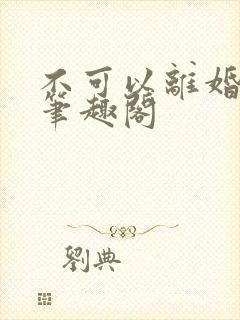 不可以離婚
筆趣閣
劉典